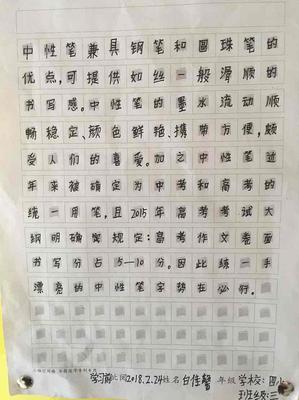 中性笔兼具钢笔和圆珠笔的
优点,可提供如丝一般滑顺的
书写感。中性笔的墨水流动顺
畅稳定、颜色鲜艳、携带方便,颇
受人们的喜爱。加之中性笔近
年来被确定为中考和高考的
统一用笔,且2015年高考考试大
纲明确规定:高考作文卷面
书写分占5—10分。因此练一手
漂亮的中性笔字势在必行。
学习前 2018.2.24姓名 白佳馨 年级 学校:四小
班级:三